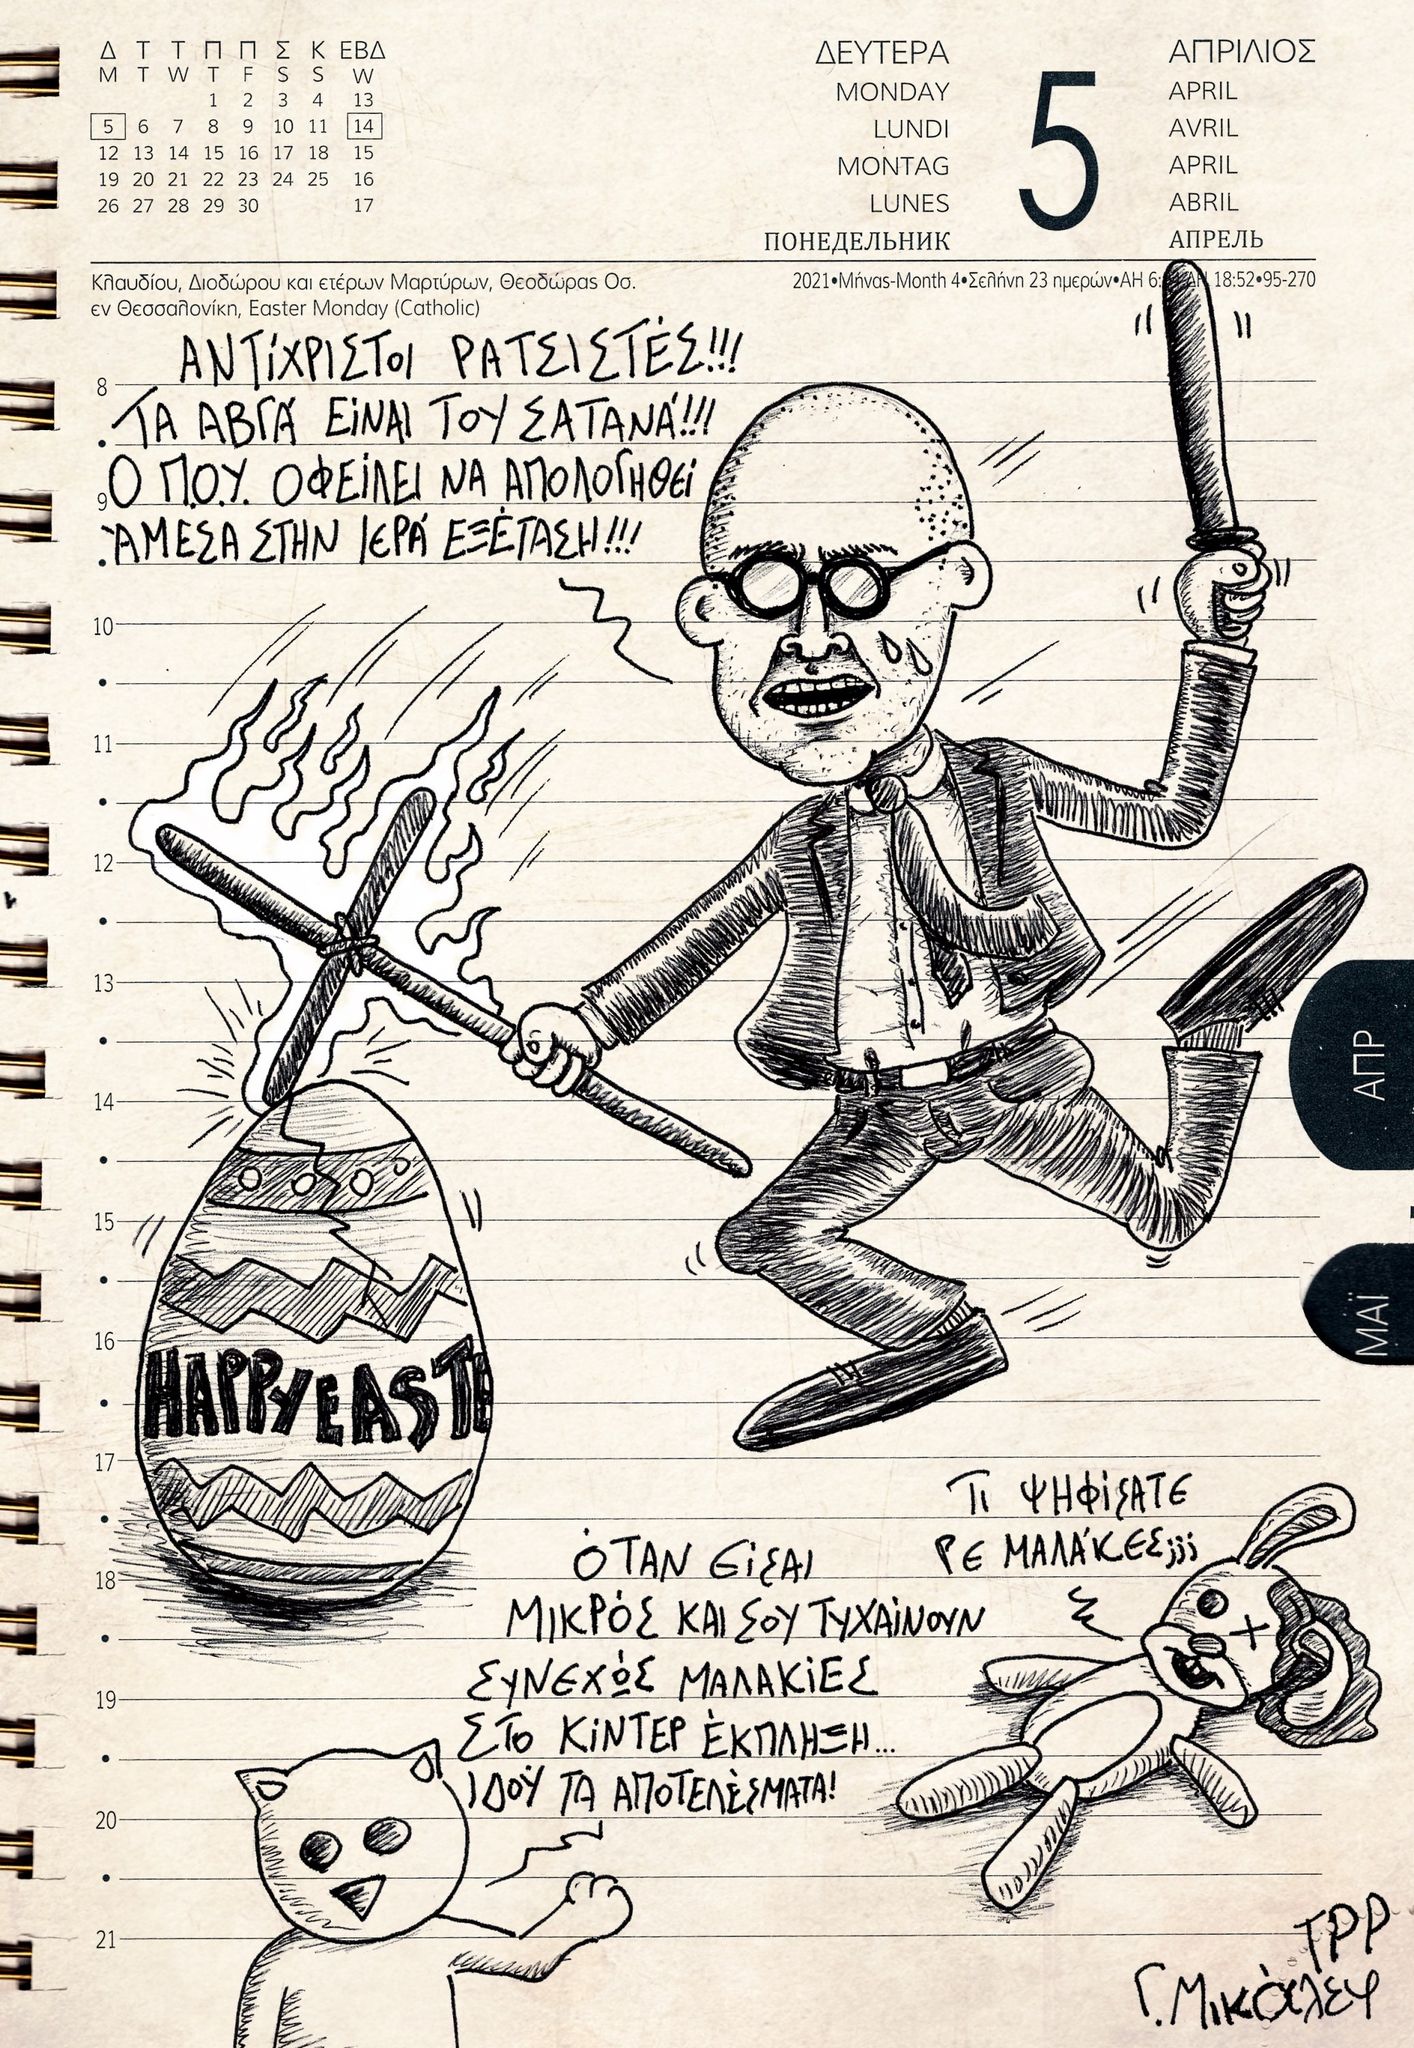 Δ Τ Τ Π Π Σ Κ ΕΒΔ
M T W T F S S W
1 2 3 4 13
5 6 7 8 9 10 11 14
12 13 14 15 16 17 18 15
19 20 21 22 23 24 25 16
26 27 28 29 30 17
ΔΕΥΤΕΡΑ
MONDAY
LUNDI
MONTAG
LUNES
ПОНЕДЕЛЬНИК
5
ΑΠΡΙΛΙΟΣ
APRIL
AVRIL
APRIL
ABRIL
АПРЕЛЬ
Κλαυδίου, Διοδώρου και ετέρων Μαρτύρων, Θεοδώρας Οσ.
εν Θεσσαλονίκη, Easter Monday (Catholic)
2021•Μήνας-Month 4•Σελήνη 23 ημερών•ΑΗ 18:52•95-270
ΑΝΤΙΧΡΙΣΤΟΙ ΡΑΤΣΙΣΤΈΣ!!!
ΤΑ ΑΒΓΆ ΕΊΝΑΙ ΤΟΥ ΣΑΤΑΝΆ!!!
Ο Π.Ο.Υ. ΟΦΕΊΛΕΙ ΝΑ ΑΠΟΛΟΓΗΘΕΊ
ΆΜΕΣΑ ΣΤΗΝ ΙΕΡΆ ΕΞΈΤΑΣΗ!!!
8
9
10
11
12
13
14
15
16
17
18
19
20
21
ΑΠΡ
ΜΑΪ
HAPPY EASTE
ΤΙ ΨΗΦΊΣΑΤΕ
ΡΕ ΜΑΛΆΚΕΣ;;;
ΌΤΑΝ ΕΊΣΑΙ
ΜΙΚΡΌΣ ΚΑΙ ΣΟΥ ΤΥΧΑΊΝΟΥΝ
ΣΥΝΕΧΏΣ ΜΑΛΑΚΊΕΣ
ΣΤΟ ΚΊΝΤΕΡ ΈΚΠΛΗΞΗ...
ΙΔΟΎ ΤΑ ΑΠΟΤΕΛΈΣΜΑΤΑ!
ΤΡΡ
Γ. ΜΙΚΌΛΕΥ